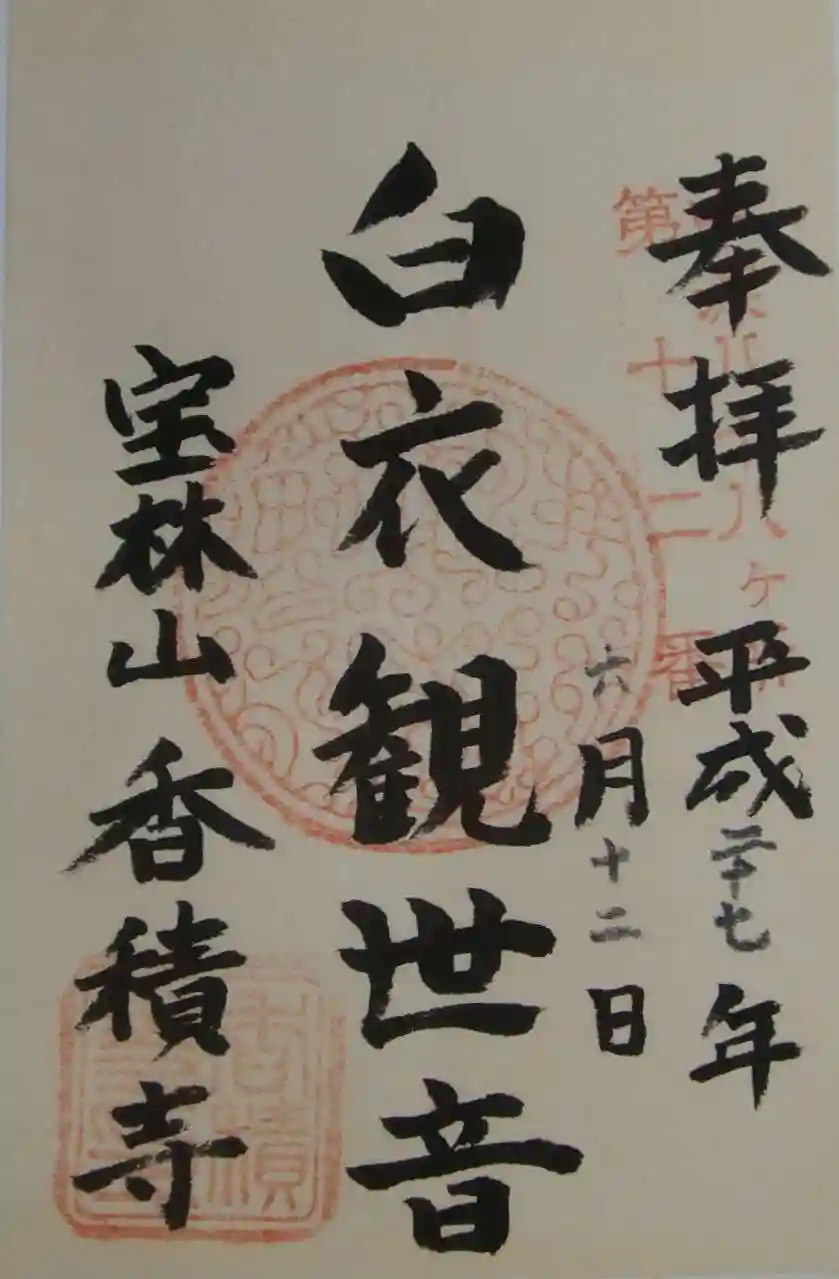 奉拝
平成二十七年
六月十二日
第十二番
白衣観世音
宝林山 香積寺